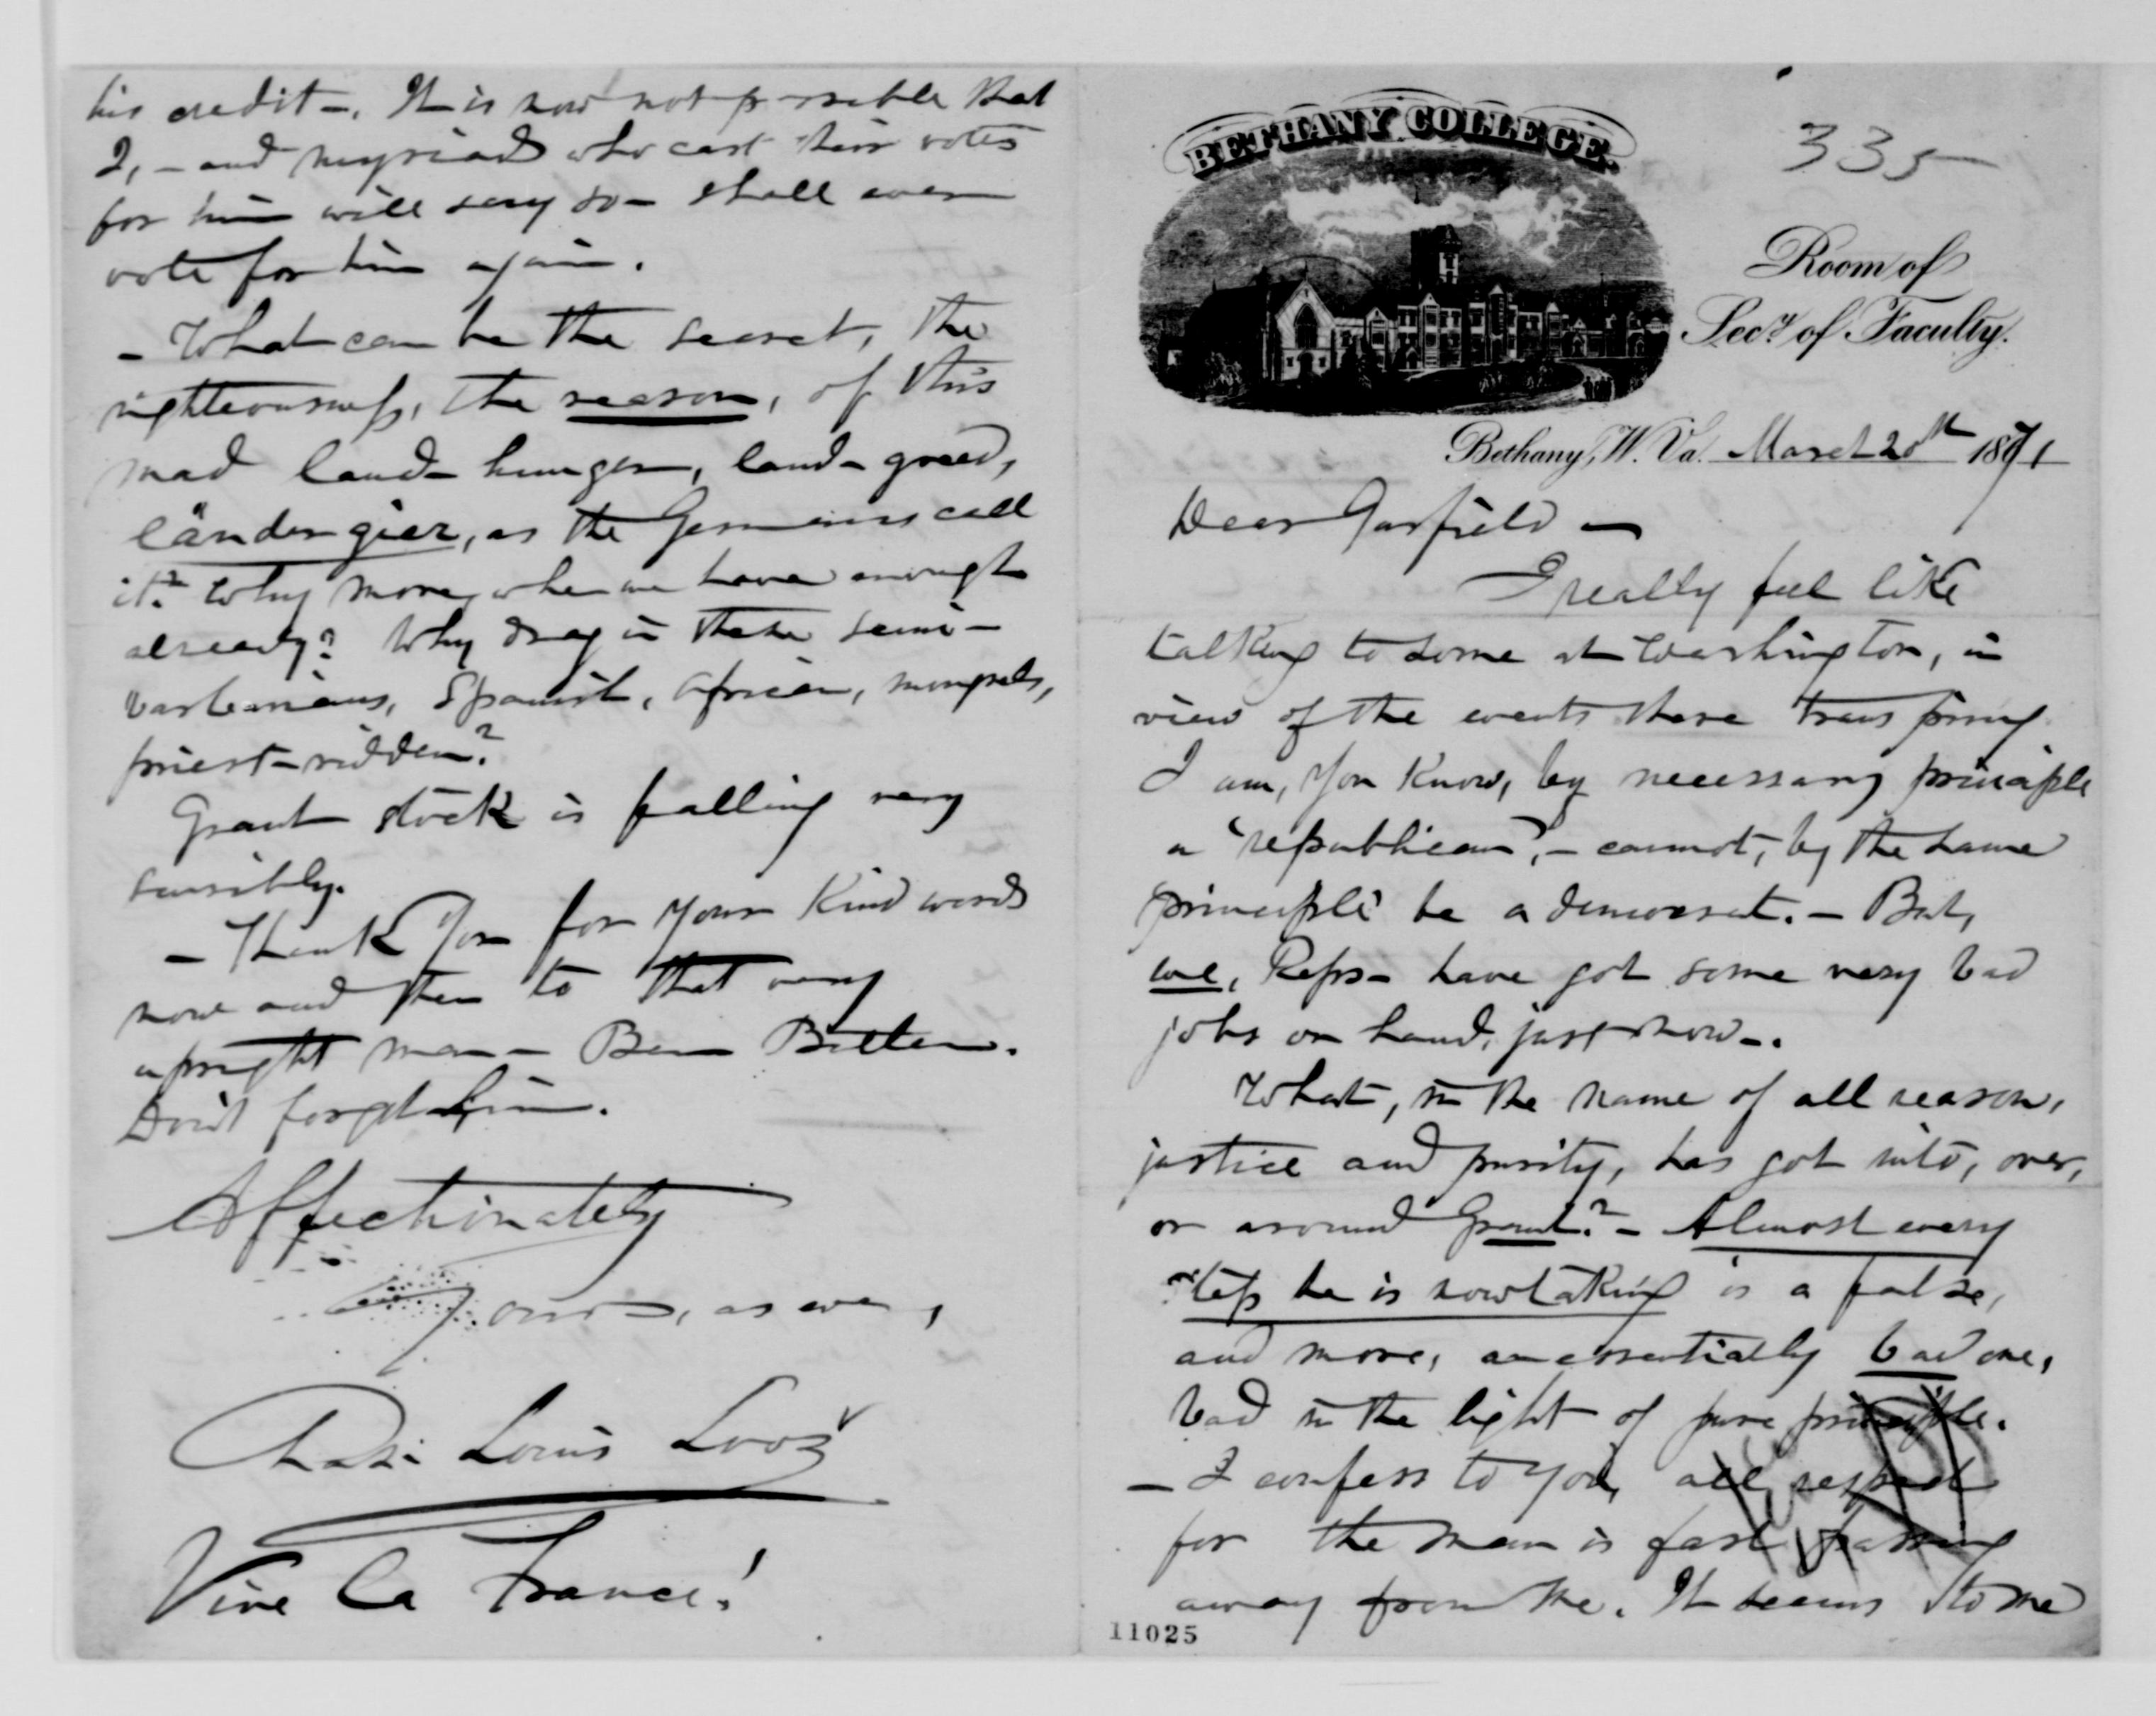 BETHANY COLLEGE.
335
Room of
Secy of Faculty.
Bethany, W. Va. March 20th 1871
Dear Garfield —
I really feel like
talking to some at Washington, in
view of the events there transpiring
I am, you know, by necessary principle
a "republican", — cannot, by the same
principle be a democrat. — But,
we, Reps — have got some very bad
jobs on hand, just now —.
What, in the name of all reason,
justice and purity, has got into, over,
or around Grant? — Almost every
step he is now taking is a false,
and more, an essentially bad one,
bad in the light of pure principle.
— I confess to you, all respect
for the man is fast passing
away from me. It seems to me
11025
his credit —. It is now not possible that
I, — and myriads who cast their votes
for him will say so — shall ever
vote for him again.
— What can be the secret, the
righteousness, the reason, of this
mad land-hunger, land-greed,
ländergier, as the Germans call
it? Why more, when we have enough
already? Why drag in these semi-
barbarians, Spanish, African, mongrels,
priest-ridden?
Grant stock is falling very
sensibly.
— Thank you for your kind words
now and then to that very
upright man — Ben Butler.
Don't forget him.
Affectionately
Yours, as ever,
Chas: Louis Loos
Vive la France!